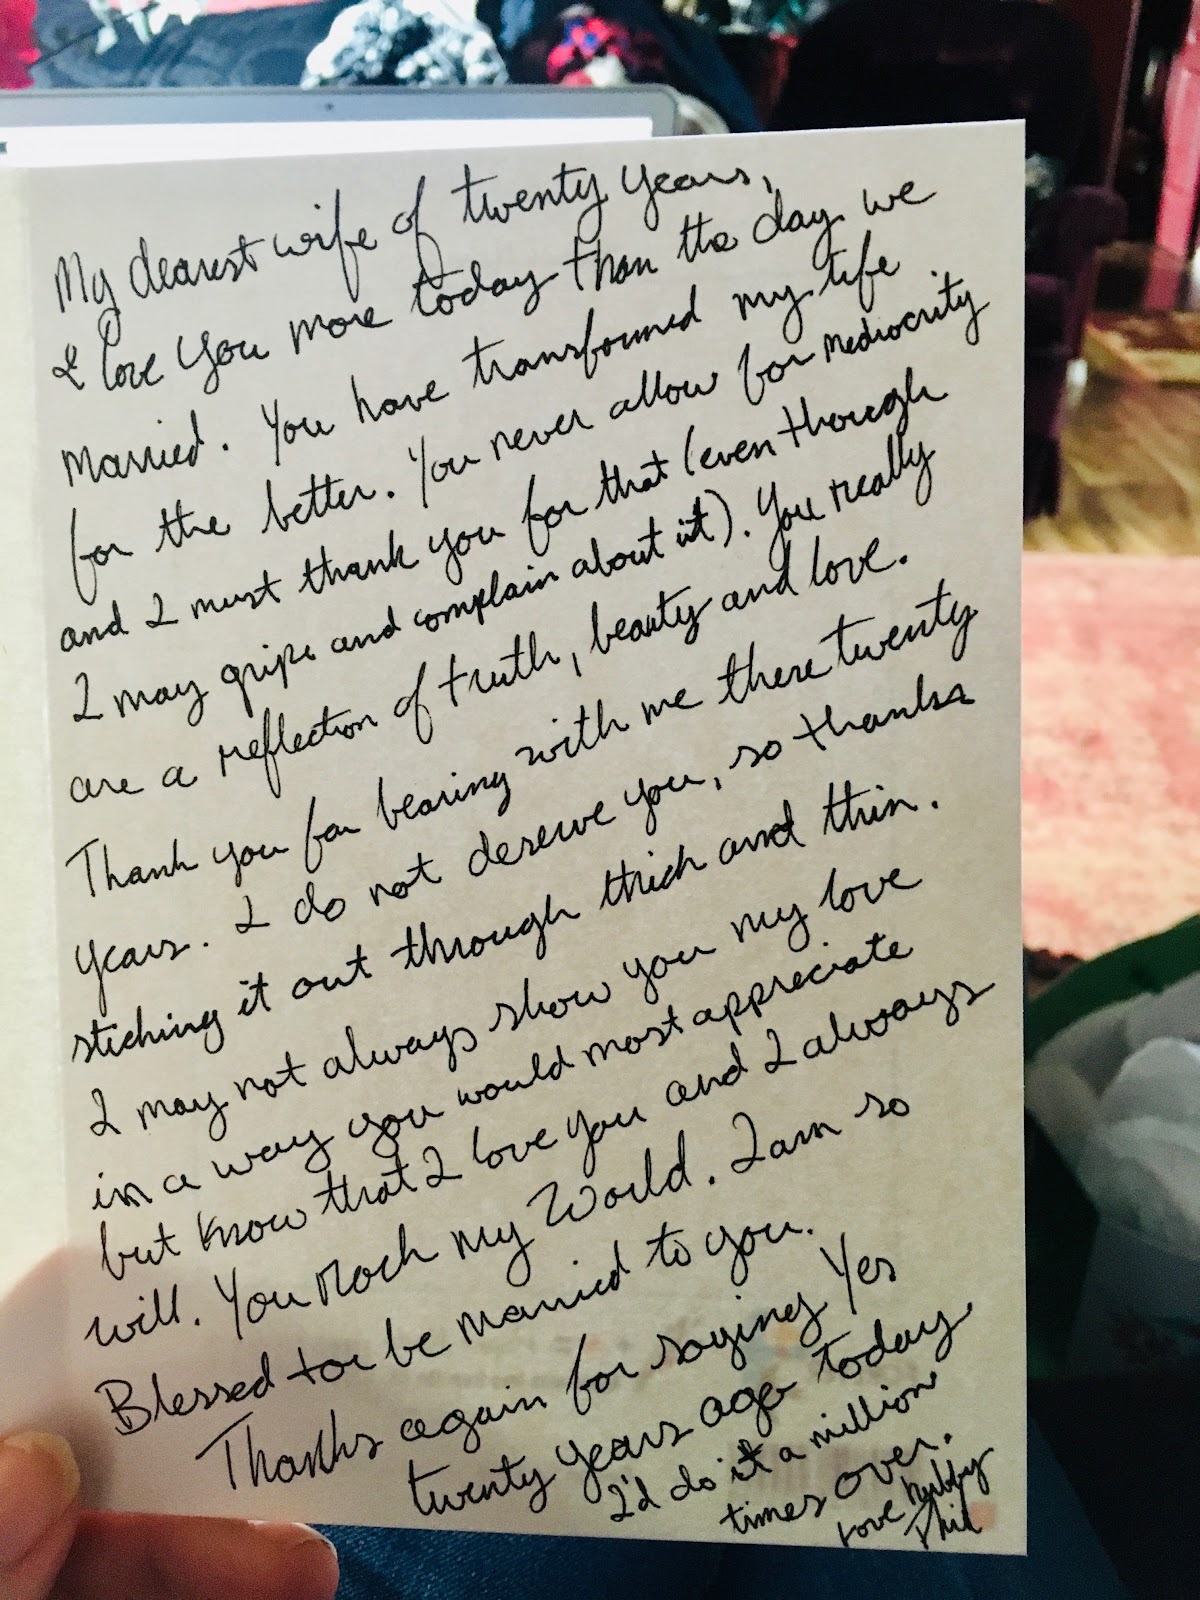 My dearest wife of twenty years,
I love you more today than the day we
married. You have transformed my life
for the better. You never allow for mediocrity
and I must thank you for that (even though
I may gripe and complain about it). You really
are a reflection of truth, beauty and love.
Thank you for bearing with me there twenty
years. I do not deserve you, so thanks
stiching it out through thick and thin.
I may not always show you my love
in a way you would most appreciate
but know that I love you and I always
will. You Rock my World. I am so
Blessed to be married to you.
Thanks again for saying Yes
twenty years ago today
I'd do it a million
times over.
Love hubby
Phil